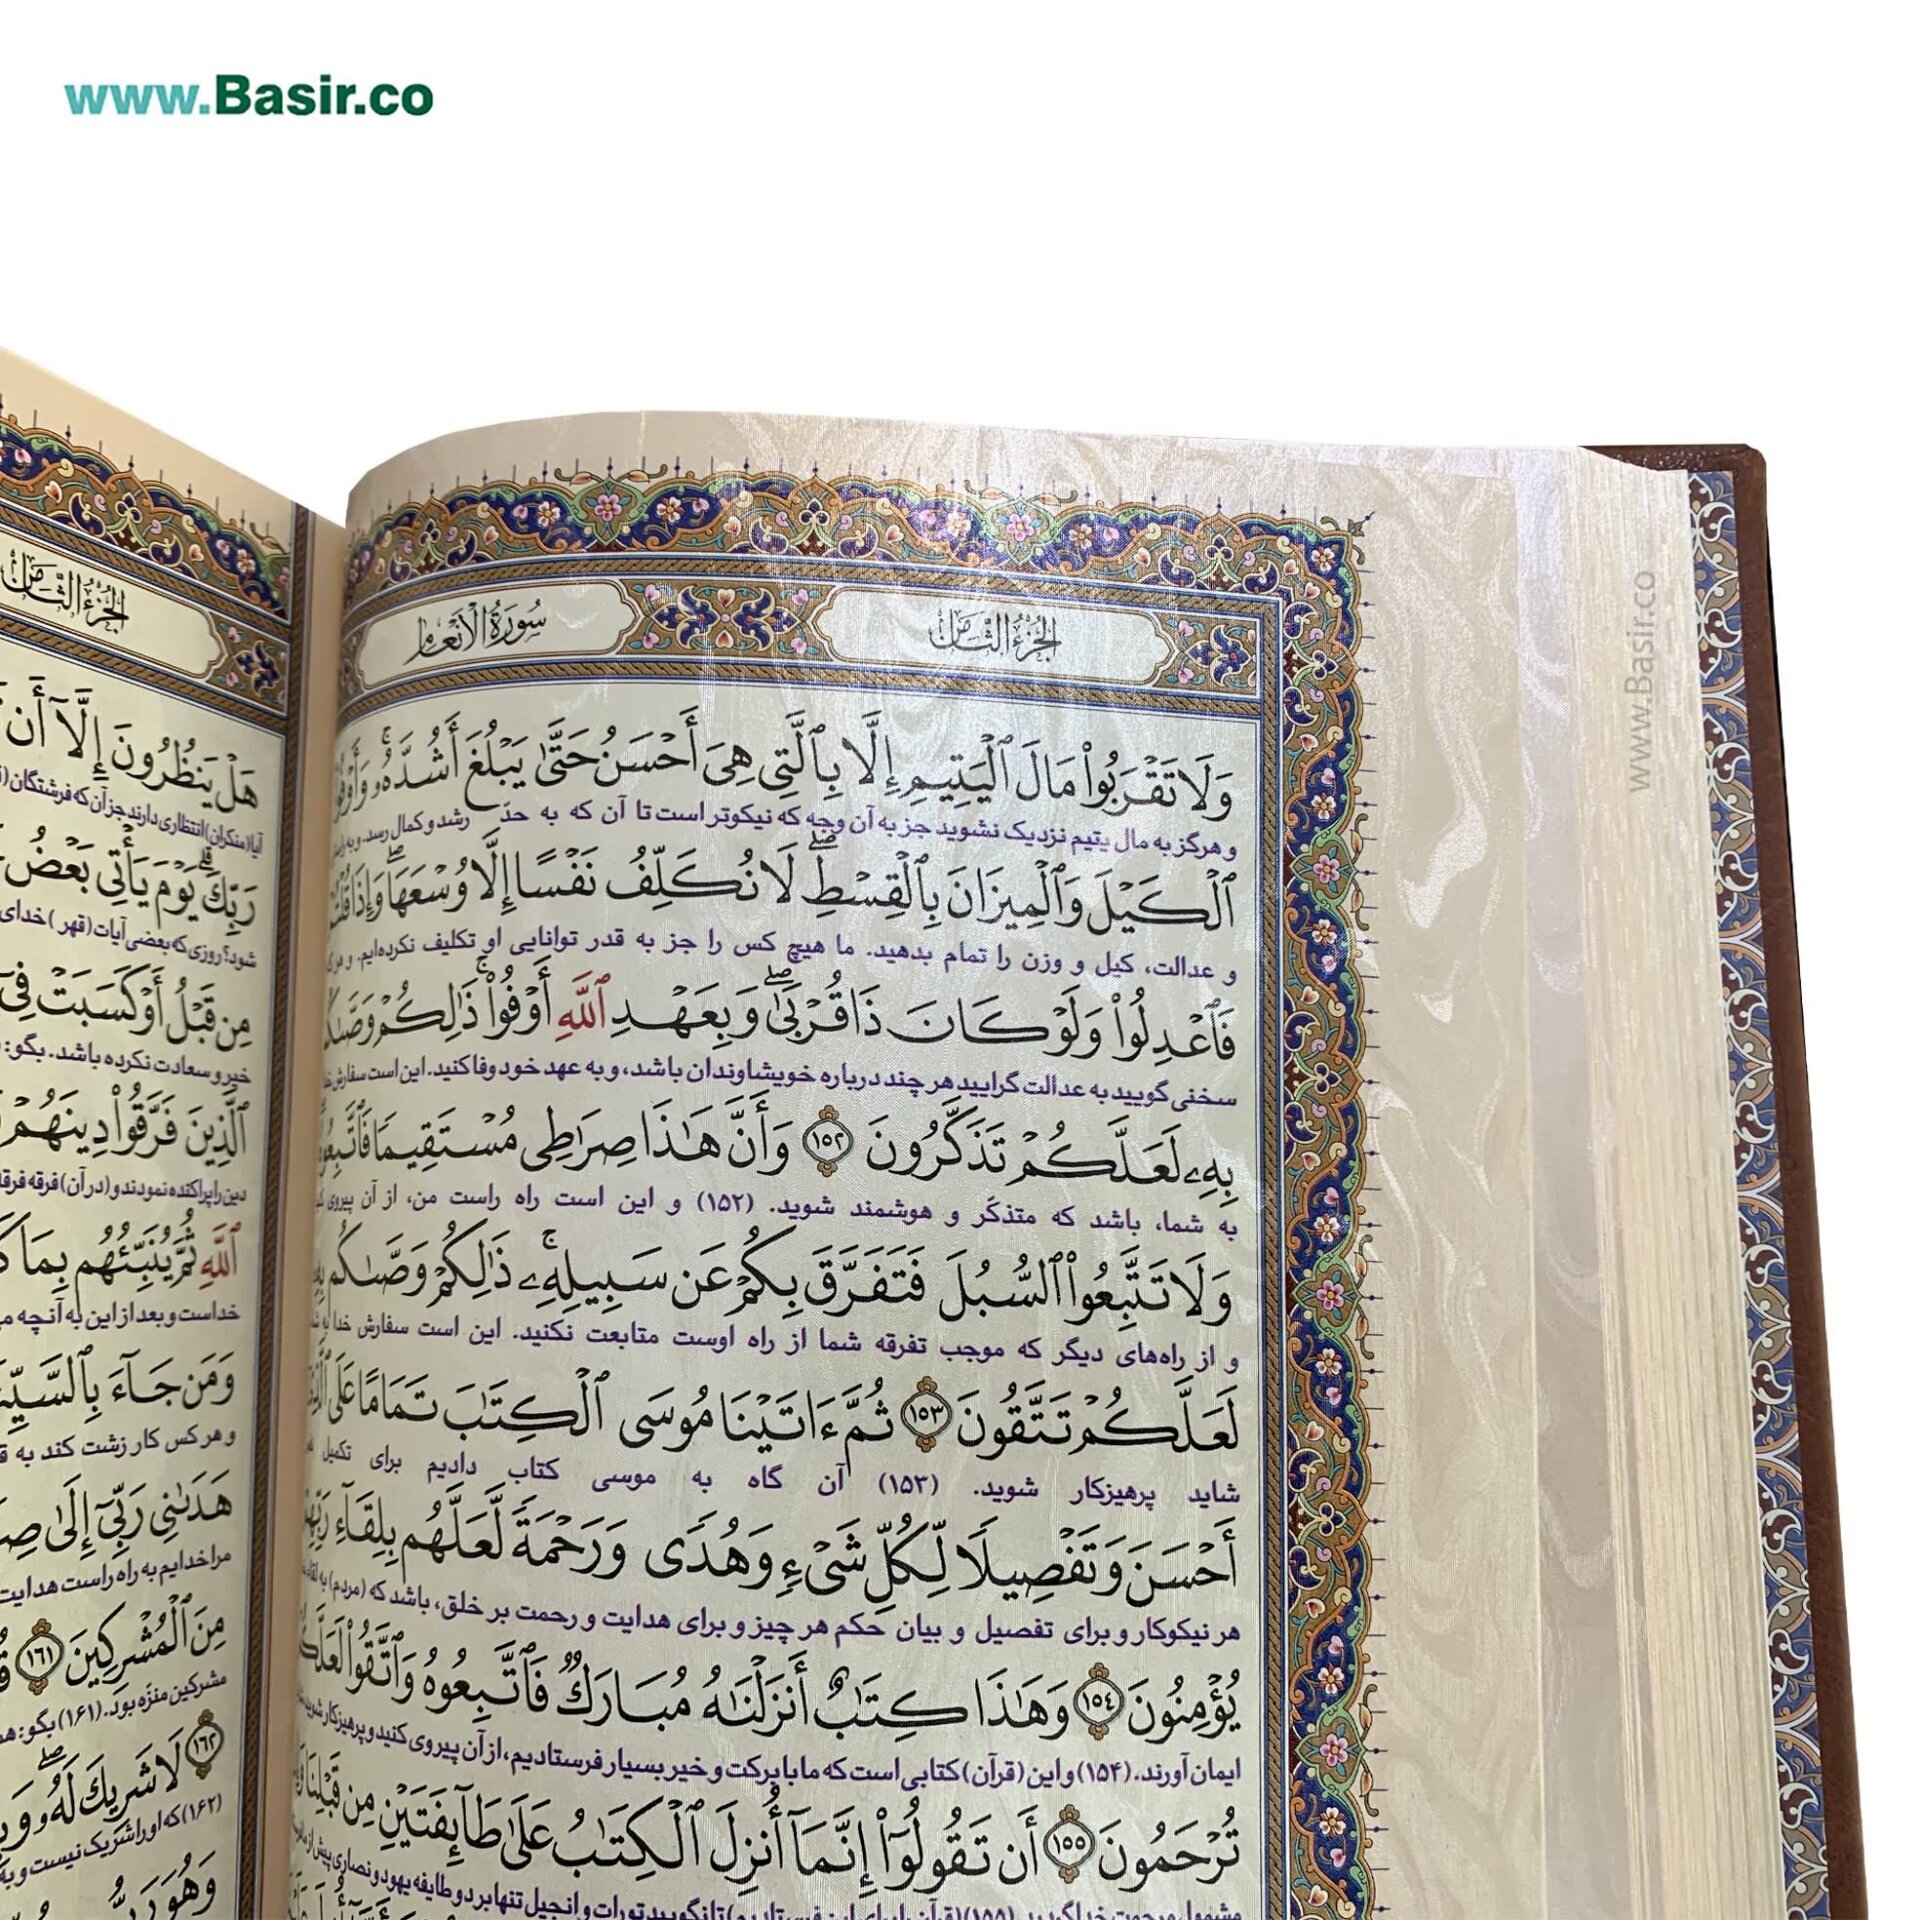 www.Basir.co
الجزء الثامن
سورة الأنعام
وَلَا تَقْرَبُوا۟ مَالَ ٱلْيَتِيمِ إِلَّا بِٱلَّتِى هِىَ أَحْسَنُ حَتَّىٰ يَبْلُغَ أَشُدَّهُۥ ۚ وَأَوْفُوا۟
و هرگز به مال یتیم نزدیک نشوید جز به آن وجه که نیکوتر است تا آن که به حدّ رشد و کمال رسد. و به راستی
ٱلْكَيْلَ وَٱلْمِيزَانَ بِٱلْقِسْطِ ۖ لَا نُكَلِّفُ نَفْسًا إِلَّا وُسْعَهَا ۖ وَإِذَا قُلْتُمْ
و عدالت، کیل و وزن را تمام بدهید. ما هیچ کس را جز به قدر توانایی او تکلیف نکرده‌ایم. و هر گاه
فَٱعْدِلُوا۟ وَلَوْ كَانَ ذَا قُرْبَىٰ ۖ وَبِعَهْدِ ٱللَّهِ أَوْفُوا۟ ۚ ذَٰلِكُمْ وَصَّىٰكُم
سخنی گویید به عدالت گرایید هر چند درباره خویشاوندان باشد، و به عهد خود وفا کنید. این است سفارش خدا
بِهِۦ لَعَلَّكُمْ تَذَكَّرُونَ ١٥٢ وَأَنَّ هَٰذَا صِرَٰطِى مُسْتَقِيمًا فَٱتَّبِعُوهُ
به شما، باشد که متذکّر و هوشمند شوید. (۱۵۲) و این است راه راست من، از آن پیروی کنید
وَلَا تَتَّبِعُوا۟ ٱلسُّبُلَ فَتَفَرَّقَ بِكُمْ عَن سَبِيلِهِۦ ۚ ذَٰلِكُمْ وَصَّىٰكُم بِهِۦ
و از راه‌های دیگر که موجب تفرقه شما از راه اوست متابعت نکنید. این است سفارش خدا به شما
لَعَلَّكُمْ تَتَّقُونَ ١٥٣ ثُمَّ ءَاتَيْنَا مُوسَى ٱلْكِتَٰبَ تَمَامًا عَلَى ٱلَّذِىٓ
شاید پرهیزکار شوید. (۱۵۳) آن گاه به موسی کتاب دادیم برای تکمیل
أَحْسَنَ وَتَفْصِيلًا لِّكُلِّ شَىْءٍ وَهُدًى وَرَحْمَةً لَّعَلَّهُم بِلِقَآءِ رَبِّهِمْ
هر نیکوکار و برای تفصیل و بیان حکم هر چیز و برای هدایت و رحمت بر خلق، باشد که (مردم) به لقاء
يُؤْمِنُونَ ١٥٤ وَهَٰذَا كِتَٰبٌ أَنزَلْنَٰهُ مُبَارَكٌ فَٱتَّبِعُوهُ وَٱتَّقُوا۟ لَعَلَّكُمْ
ایمان آورند. (۱۵۴) و این (قرآن) کتابی است که ما با برکت و خیر بسیار فرستادیم، از آن پیروی کنید و پرهیزکار شوید
تُرْحَمُونَ ١٥٥ أَن تَقُولُوٓا۟ إِنَّمَآ أُنزِلَ ٱلْكِتَٰبُ عَلَىٰ طَآئِفَتَيْنِ مِن قَبْلِنَا
مشمول مرحمت خدا گردید. (۱۵۵) (قرآن را برای این فرستادیم) تا نگویید تورات و انجیل تنها بر دو طایفه یهود و نصاری پیش از ما
الجزء الثامن
هَلْ يَنظُرُونَ إِلَّآ أَن
آیا (منکران) انتظاری دارند جز آن که فرشتگان
رَبِّكَ ۗ يَوْمَ يَأْتِى بَعْضُ
شود؟ روزی که بعضی آیات (قهر) خدای
مِن قَبْلُ أَوْ كَسَبَتْ فِىٓ
خیر و سعادت نکرده باشد. بگو:
ٱلَّذِينَ فَرَّقُوا۟ دِينَهُمْ
دین را پراکنده نمودند و (در آن) فرقه فرقه
ٱللَّهِ ثُمَّ يُنَبِّئُهُم بِمَا
خداست و بعد از این به آنچه
وَمَن جَآءَ بِٱلسَّيِّئَةِ
و هر کس کار زشت کند به
هَدَىٰنِى رَبِّىٓ إِلَىٰ
مرا خدایم به راه راست هدایت
مِنَ ٱلْمُشْرِكِينَ ١٦١
مشرکین منزّه بود. (۱۶۱) بگو:
١٦٢ لَا شَرِيكَ لَهُۥ ۖ
(۱۶۲) که او را شریک نیست و به
وَهُوَ رَبُّ
www.Basir.co